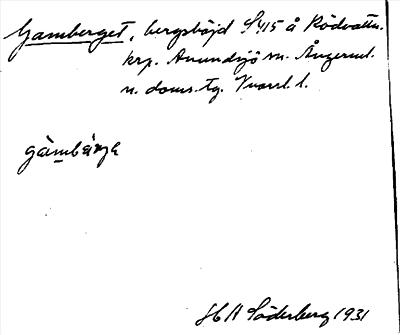 Gamberget, bergshöjd S 415 å Rödvattn.
krp. Anundsjö sn. Ångerml.
n. doms. tg. Vnorrl. l.
gàmbärjə
H A Söderberg 1931